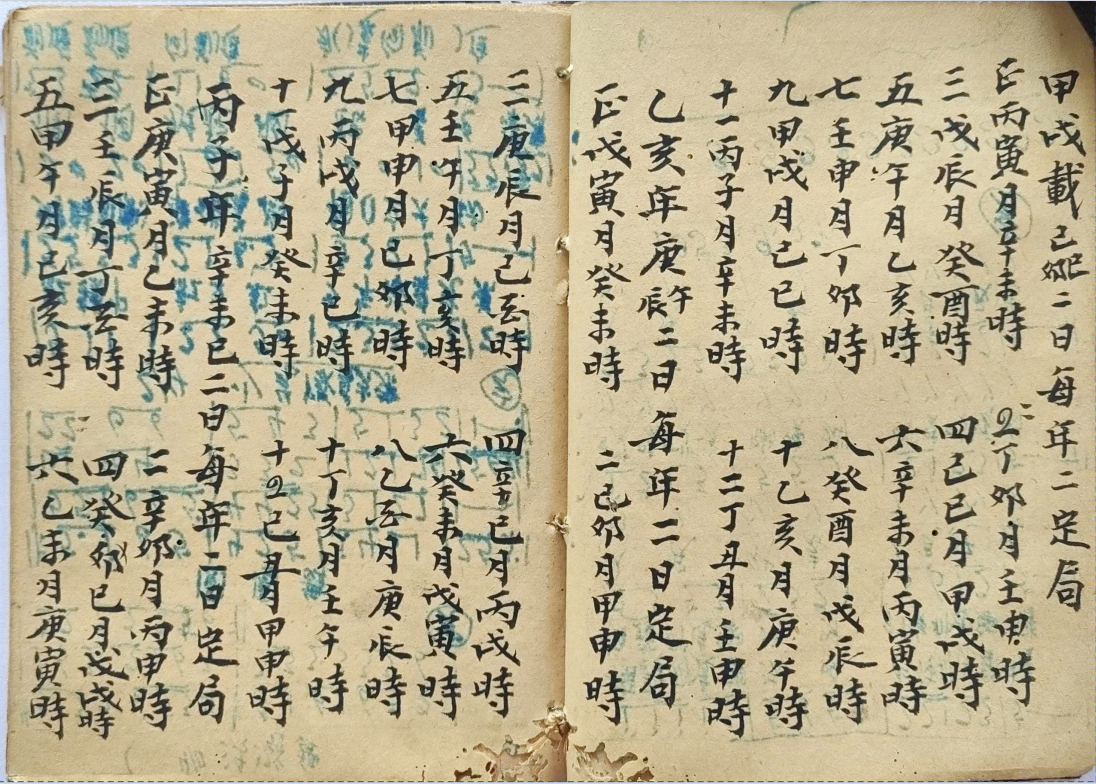 甲戌載己卯巳二日每年二定局
正丙寅月辛未時 二丁卯月壬申時
三戊辰月癸酉時 四己巳月甲戌時
五庚午月乙亥時 六辛未月丙寅時
七壬申月丁卯時 八癸酉月戊辰時
九甲戌月己巳時 十乙亥月庚午時
十一丙子月辛未時 十二丁丑月壬申時
乙亥年庚辰午二日每年二日定局
正戊寅月癸未時 二己卯月甲申時
三庚辰月己亥時 四辛巳月丙戌時
五壬午月丁亥時 六癸未月戊寅時
七甲申月己卯時 八乙酉月庚辰時
九丙戌月辛巳時 十丁亥月壬午時
十一戊子月癸未時 十二己丑月甲申時
丙子年辛未巳二日每年二日定局
正庚寅月乙未時 二辛卯月丙申時
三壬辰月丁亥時 四癸卯巳月戊戌時
五甲午月己亥時 六乙未月庚寅時